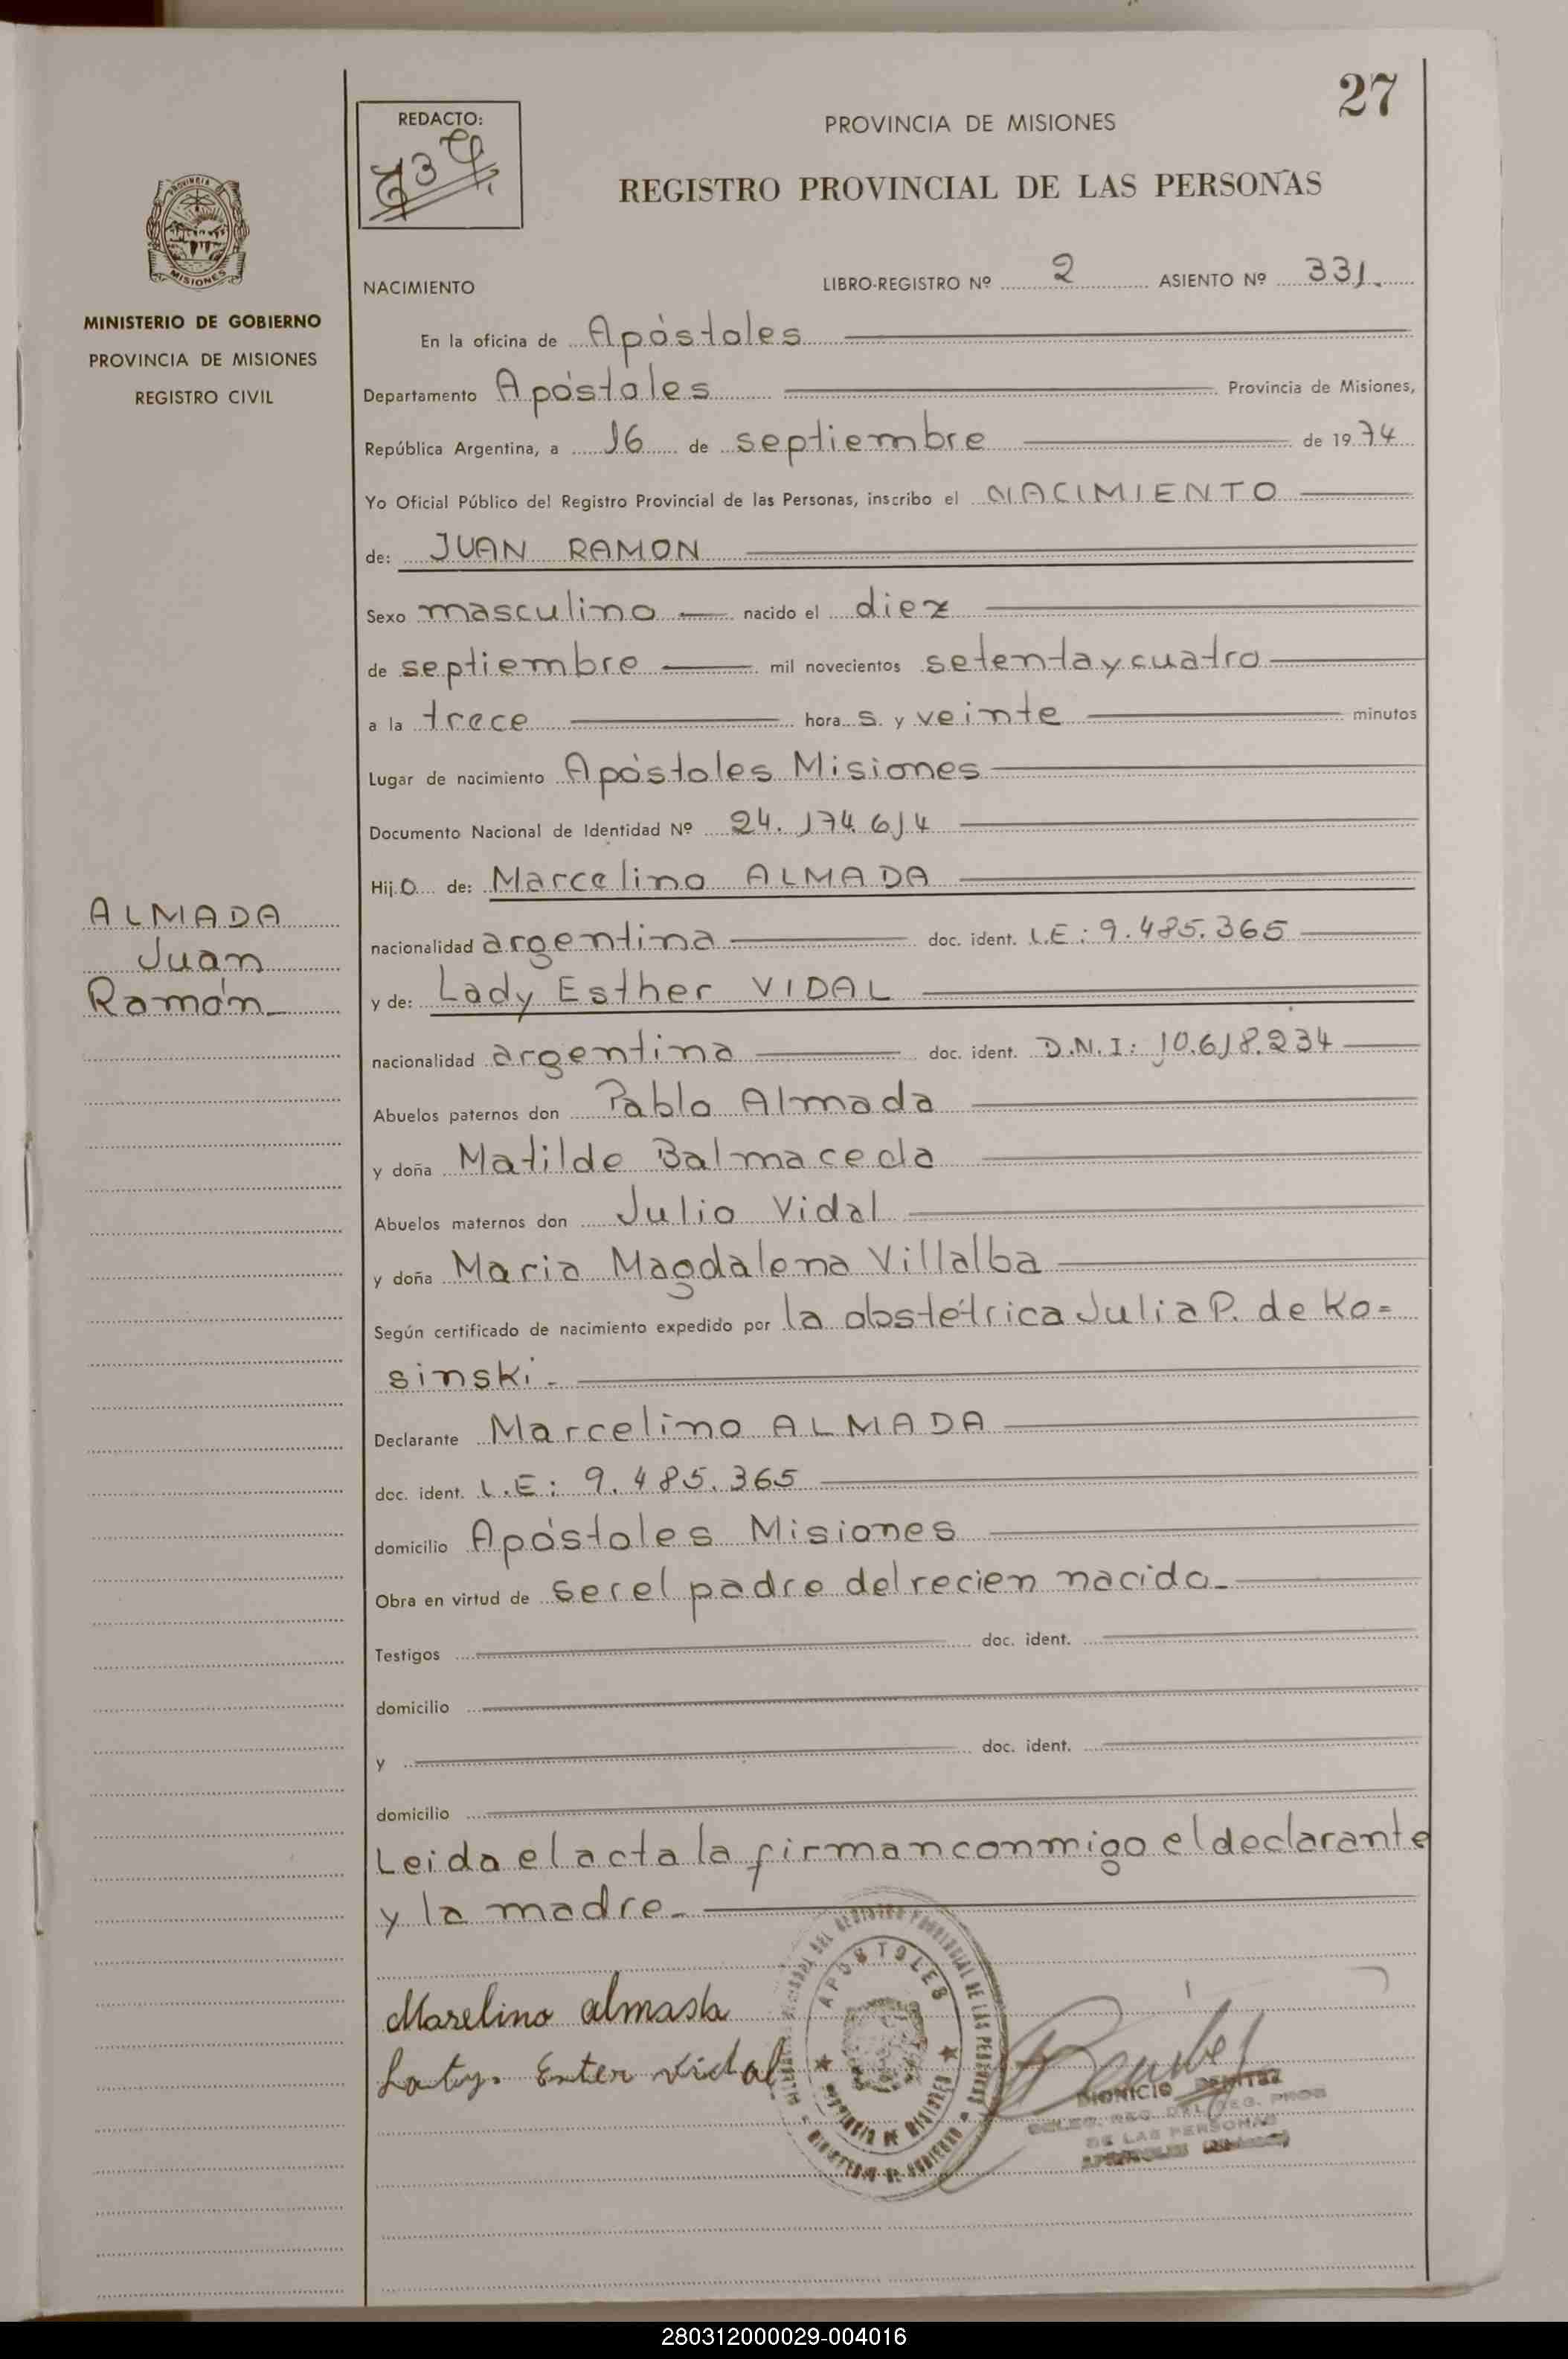 27
REDACTO:
PROVINCIA DE MISIONES
REGISTRO PROVINCIAL DE LAS PERSONAS
PROVINCIA
MISIONES
MINISTERIO DE GOBIERNO
PROVINCIA DE MISIONES
REGISTRO CIVIL
NACIMIENTO LIBRO-REGISTRO Nº 2 ASIENTO Nº 331.
En la oficina de Apóstoles
Departamento Apóstoles Provincia de Misiones,
República Argentina, a 16 de septiembre de 1974
Yo Oficial Público del Registro Provincial de las Personas, inscribo el NACIMIENTO
de: JUAN RAMON
Sexo masculino nacido el diez
de septiembre mil novecientos setenta y cuatro
a la trece hora s y veinte minutos
Lugar de nacimiento Apóstoles Misiones
Documento Nacional de Identidad Nº 24.174.614
Hijo de: Marcelino ALMADA
ALMADA
Juan
Ramón
nacionalidad argentina doc. ident. L.E: 9.485.365
y de: Lady Esther VIDAL
nacionalidad argentina doc. ident. D.N.I: 10.618.234
Abuelos paternos don Pablo Almada
y doña Matilde Balmaceda
Abuelos maternos don Julio Vidal
y doña Maria Magdalena Villalba
Según certificado de nacimiento expedido por la obstétrica Julia P. de Ko=
sinski.
Declarante Marcelino ALMADA
doc. ident. L.E: 9.485.365
domicilio Apóstoles Misiones
Obra en virtud de ser el padre del recien nacido
Testigos doc. ident.
domicilio
y doc. ident.
domicilio
Leida el acta la firman conmigo el declarante
y la madre
APOSTOLES
PROVINCIA DE MISIONES
MINISTERIO DE GOBIERNO
DEL REGISTRO PROVINCIAL DE LAS PERSONAS
Marelino almada
Enter vidal
DIONICIO BENITEZ
DELEG. REG. DEL REG. PROV
DE LAS PERSONAS
APOSTOLES (Misiones)
280312000029-004016